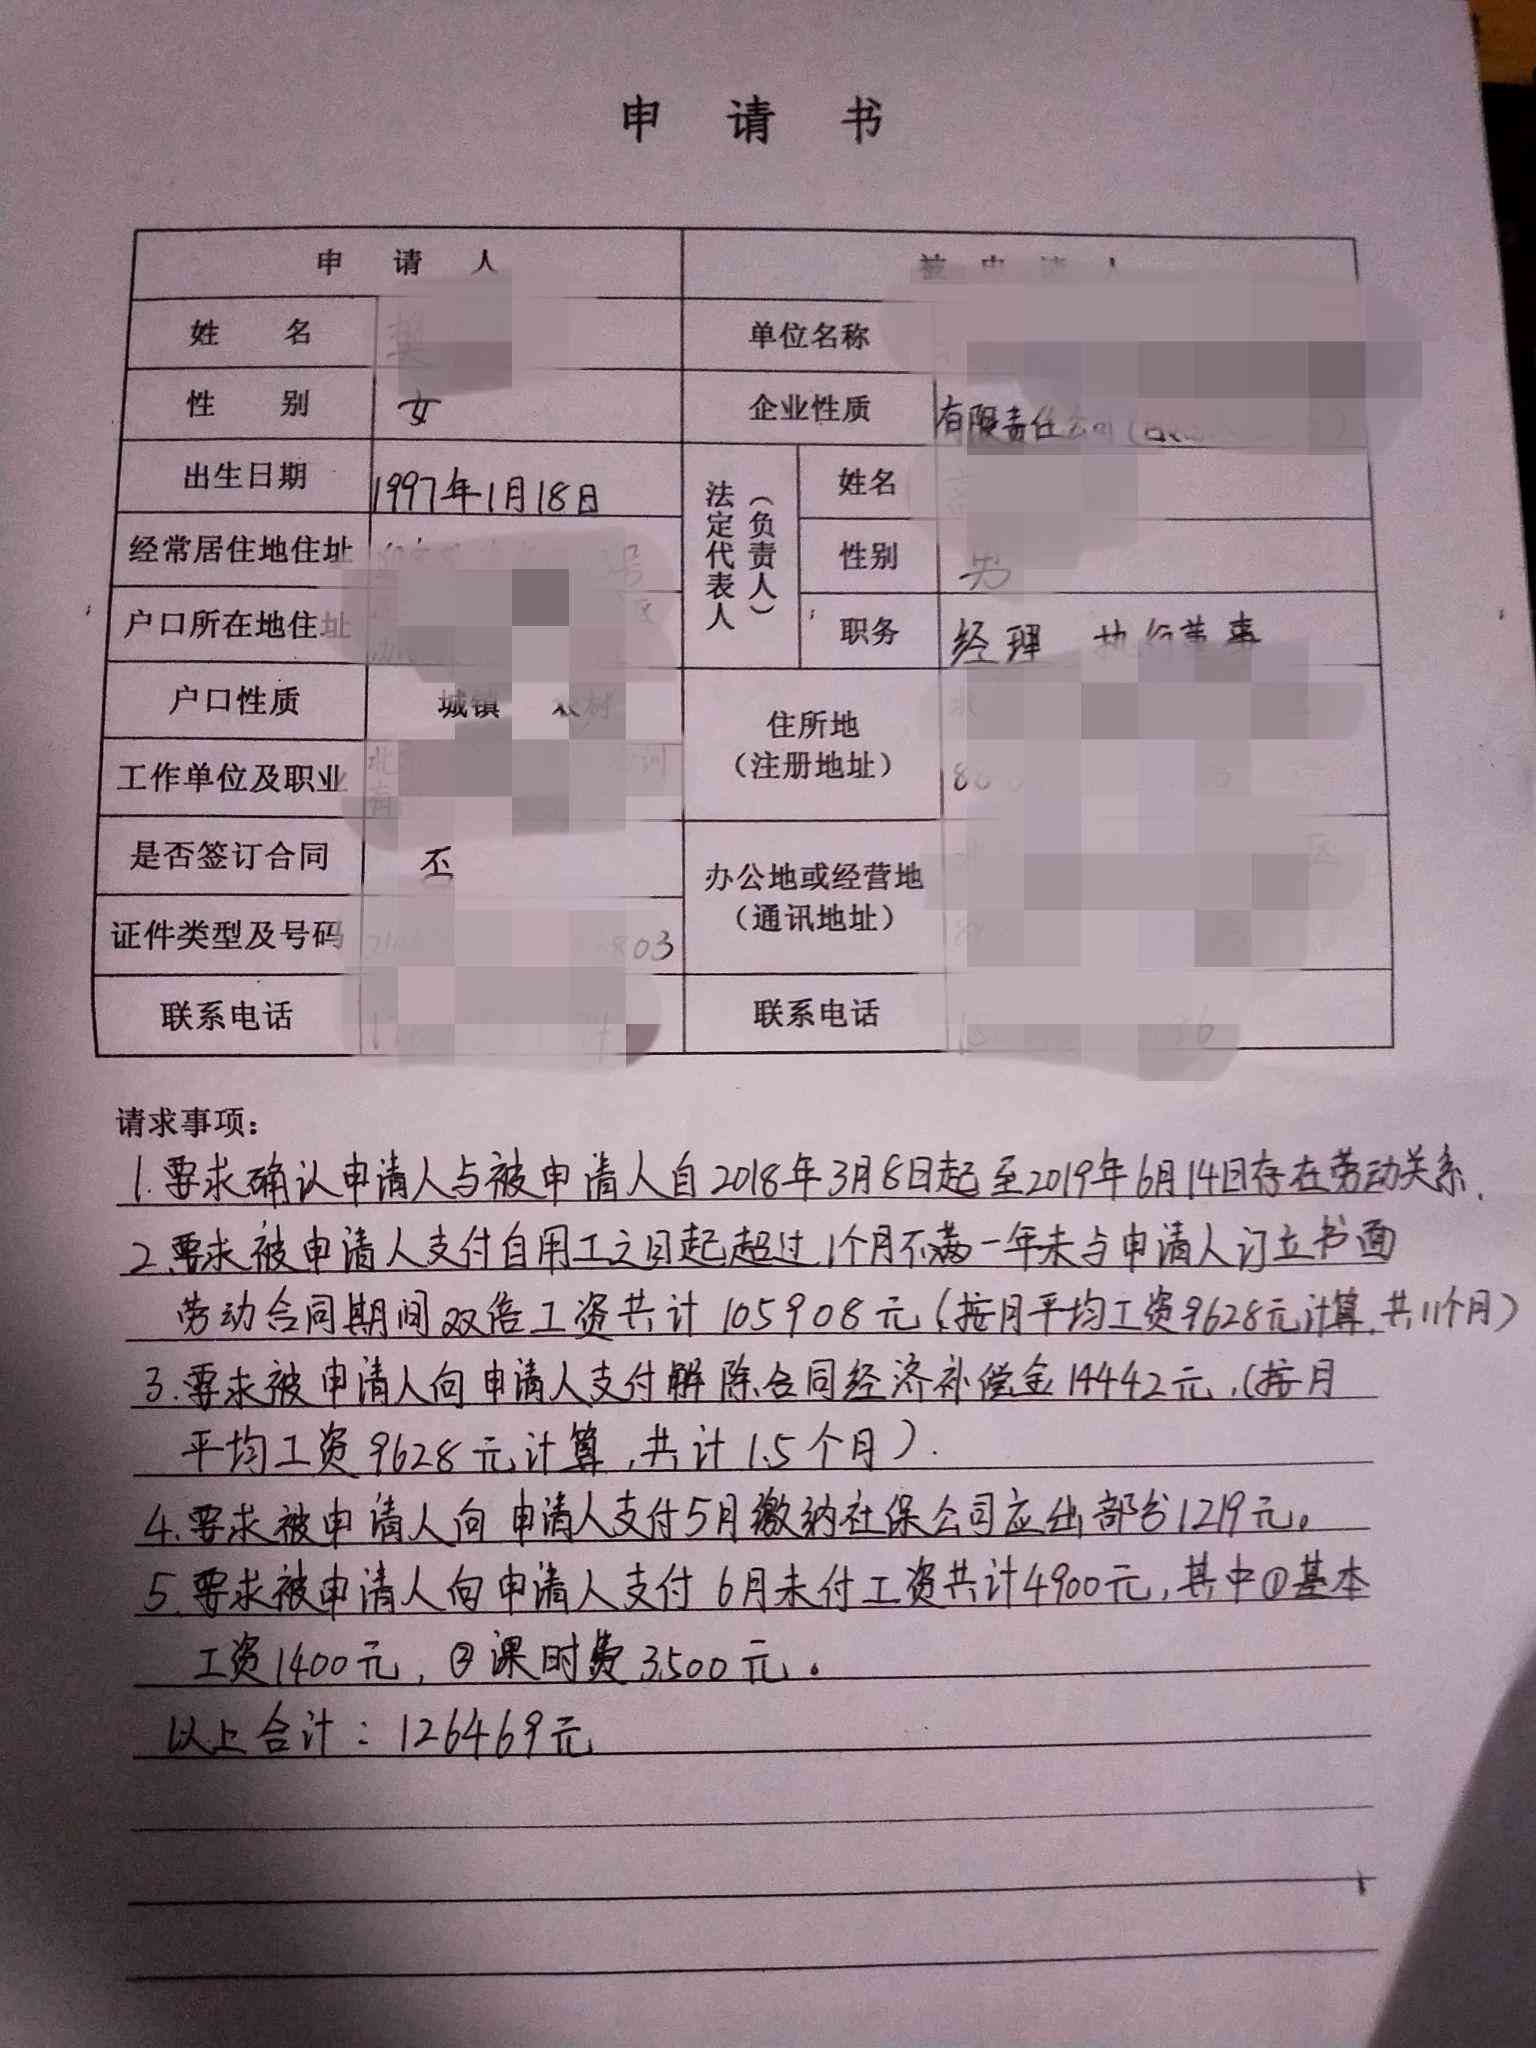 申 请 书
申 请 人
姓 名
单位名称
性 别 女
企业性质 有限责任公司(
出生日期 1997年1月18日
法定代表人(负责人)
姓名
经常居住地住址 号
性别 男
户口所在地住址
职务 经理 执行董事
户口性质 城镇 农村
住所地
(注册地址)
工作单位及职业
是否签订合同 否
办公地或经营地
(通讯地址)
证件类型及号码 803
联系电话
联系电话
请求事项:
1.要求确认申请人与被申请人自2018年3月8日起至2019年6月14日存在劳动关系.
2.要求被申请人支付自用工之日起超过1个月不满一年未与申请人订立书面
劳动合同期间双倍工资共计105908元(按月平均工资9628元计算,共11个月)
3.要求被申请人向申请人支付解除合同经济补偿金14442元,(按月
平均工资9628元计算,共计1.5个月).
4.要求被申请人向申请人支付5月缴纳社保公司应出部分1219元。
5.要求被申请人向申请人支付6月未付工资共计4900元,其中①基本
工资1400元,②课时费3500元。
以上合计:126469元